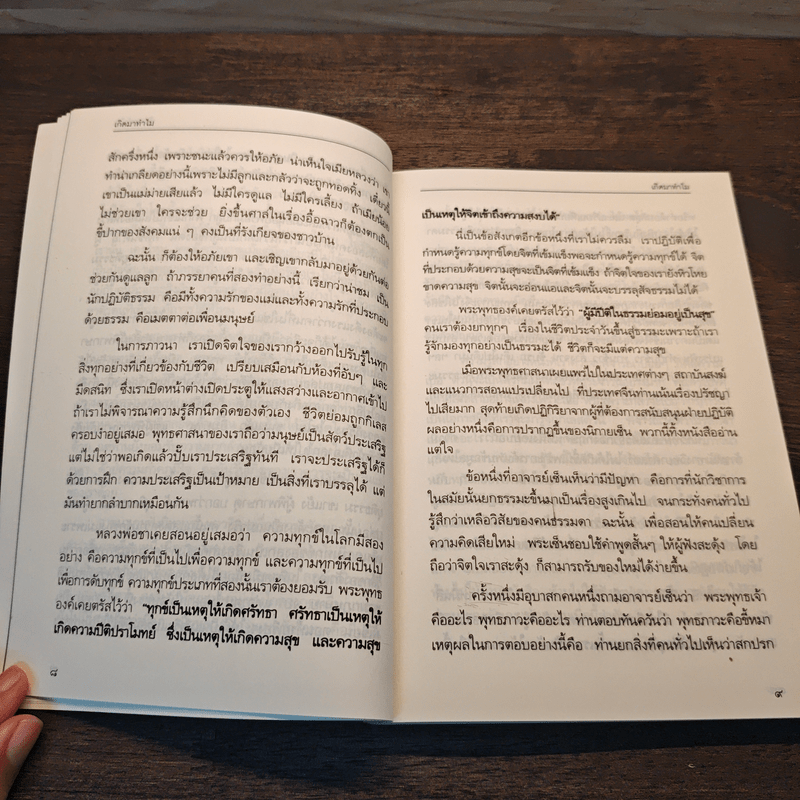 เกิดมาทำไม
สักครึ่งหนึ่ง เพราะชนะแล้วควรให้อภัย น่าเห็นใจเมียหลวงว่า เขา
ทำน่าเกลียดอย่างนี้เพราะไม่มีลูกและกลัวว่าจะถูกทอดทิ้ง เดี๋ยวนี้
เขาเป็นแม่ม่ายเสียแล้ว ไม่มีใครดูแล ไม่มีใครเลี้ยง ถ้าเมียน้อย
ไม่ช่วยเขา ใครจะช่วย ยิ่งขึ้นศาลในเรื่องอื้อฉาวก็ต้องตกเป็น
ขี้ปากของสังคมแน่ ๆ คงเป็นที่รังเกียจของชาวบ้าน
ฉะนั้น ก็ต้องให้อภัยเขา และเชิญเขากลับมาอยู่ด้วยกันต่อ
ช่วยกันดูแลลูก ถ้าภรรยาคนที่สองทำอย่างนี้ เรียกว่าน่าชม เป็น
นักปฏิบัติธรรม คือมีทั้งความรักของแม่และทั้งความรักที่ประกอบ
ด้วยธรรม คือเมตตาต่อเพื่อนมนุษย์
ในการภาวนา เราเปิดจิตใจของเรากว้างออกไปรับรู้ในทุก
สิ่งทุกอย่างที่เกี่ยวข้องกับชีวิต เปรียบเสมือนกับห้องที่อับๆ และ
มืดสนิท ซึ่งเราเปิดหน้าต่างเปิดประตูให้แสงสว่างและอากาศเข้าไป
ถ้าเราไม่พิจารณาความรู้สึกนึกคิดของตัวเอง ชีวิตย่อมถูกกิเลส
ครอบงำอยู่เสมอ พุทธศาสนาของเราถือว่ามนุษย์เป็นสัตว์ประเสริฐ
แต่ไม่ใช่ว่าพอเกิดแล้วปั๊บเราประเสริฐทันที เราจะประเสริฐได้ก็
ด้วยการฝึก ความประเสริฐเป็นเป้าหมาย เป็นสิ่งที่เราบรรลุได้ แต่
มันทำยากลำบากเหมือนกัน
หลวงพ่อชาเคยสอนอยู่เสมอว่า ความทุกข์ในโลกมีสอง
อย่าง คือความทุกข์ที่เป็นไปเพื่อความทุกข์ และความทุกข์ที่เป็นไป
เพื่อการดับทุกข์ ความทุกข์ประเภทที่สองนั้นเราต้องยอมรับ พระพุทธ
องค์เคยตรัสไว้ว่า "ทุกข์เป็นเหตุให้เกิดศรัทธา ศรัทธาเป็นเหตุให้
เกิดความปีติปราโมทย์ ซึ่งเป็นเหตุให้เกิดความสุข และความสุข
๘
เกิดมาทำไม
เป็นเหตุให้จิตเข้าถึงความสงบได้"
นี่เป็นข้อสังเกตอีกข้อหนึ่งที่เราไม่ควรลืม เราปฏิบัติเพื่อ
กำหนดรู้ความทุกข์โดยจิตที่เข้มแข็งพอจะกำหนดรู้ความทุกข์ได้ จิต
ที่ประกอบด้วยความสุขจะเป็นจิตที่เข้มแข็ง ถ้าจิตใจของเรายังหิวโหย
ขาดความสุข จิตนั้นจะอ่อนแอและจิตนั้นจะบรรลุสัจธรรมไม่ได้
พระพุทธองค์เคยตรัสไว้ว่า "ผู้มีปีติในธรรมย่อมอยู่เป็นสุข"
คนเราต้องยกทุกๆ เรื่องในชีวิตประจำวันขึ้นสู่ธรรมะเพราะถ้าเรา
รู้จักมองทุกอย่างเป็นธรรมะได้ ชีวิตก็จะมีแต่ความสุข
เมื่อพระพุทธศาสนาเผยแพร่ไปในประเทศต่างๆ สถาบันสงฆ์
และแนวการสอนแปรเปลี่ยนไป ที่ประเทศจีนท่านเน้นเรื่องปรัชญา
ไปเสียมาก สุดท้ายเกิดปฏิกิริยาจากผู้ที่ต้องการสนับสนุนฝ่ายปฏิบัติ
ผลอย่างหนึ่งคือการปรากฏขึ้นของนิกายเซ็น พวกนี้ทิ้งหนังสืออ่าน
แต่ใจ
ข้อหนึ่งที่อาจารย์เซ็นเห็นว่ามีปัญหา คือการที่นักวิชาการ
ในสมัยนั้นยกธรรมะขึ้นมาเป็นเรื่องสูงเกินไป จนกระทั่งคนทั่วไป
รู้สึกว่าเหลือวิสัยของคนธรรมดา ฉะนั้น เพื่อสอนให้คนเปลี่ยน
ความคิดเสียใหม่ พระเซ็นชอบใช้คำพูดสั้นๆ ให้ผู้ฟังสะดุ้ง โดย
ถือว่าจิตใจเราสะดุ้ง ก็สามารถรับของใหม่ได้ง่ายขึ้น
ครั้งหนึ่งมีอุบาสกคนหนึ่งถามอาจารย์เซ็นว่า พระพุทธเจ้า
คืออะไร พุทธภาวะคืออะไร ท่านตอบทันควันว่า พุทธภาวะคือขี้หมา
เหตุผลในการตอบอย่างนี้คือ ท่านยกสิ่งที่คนทั่วไปเห็นว่าสกปรก
๙